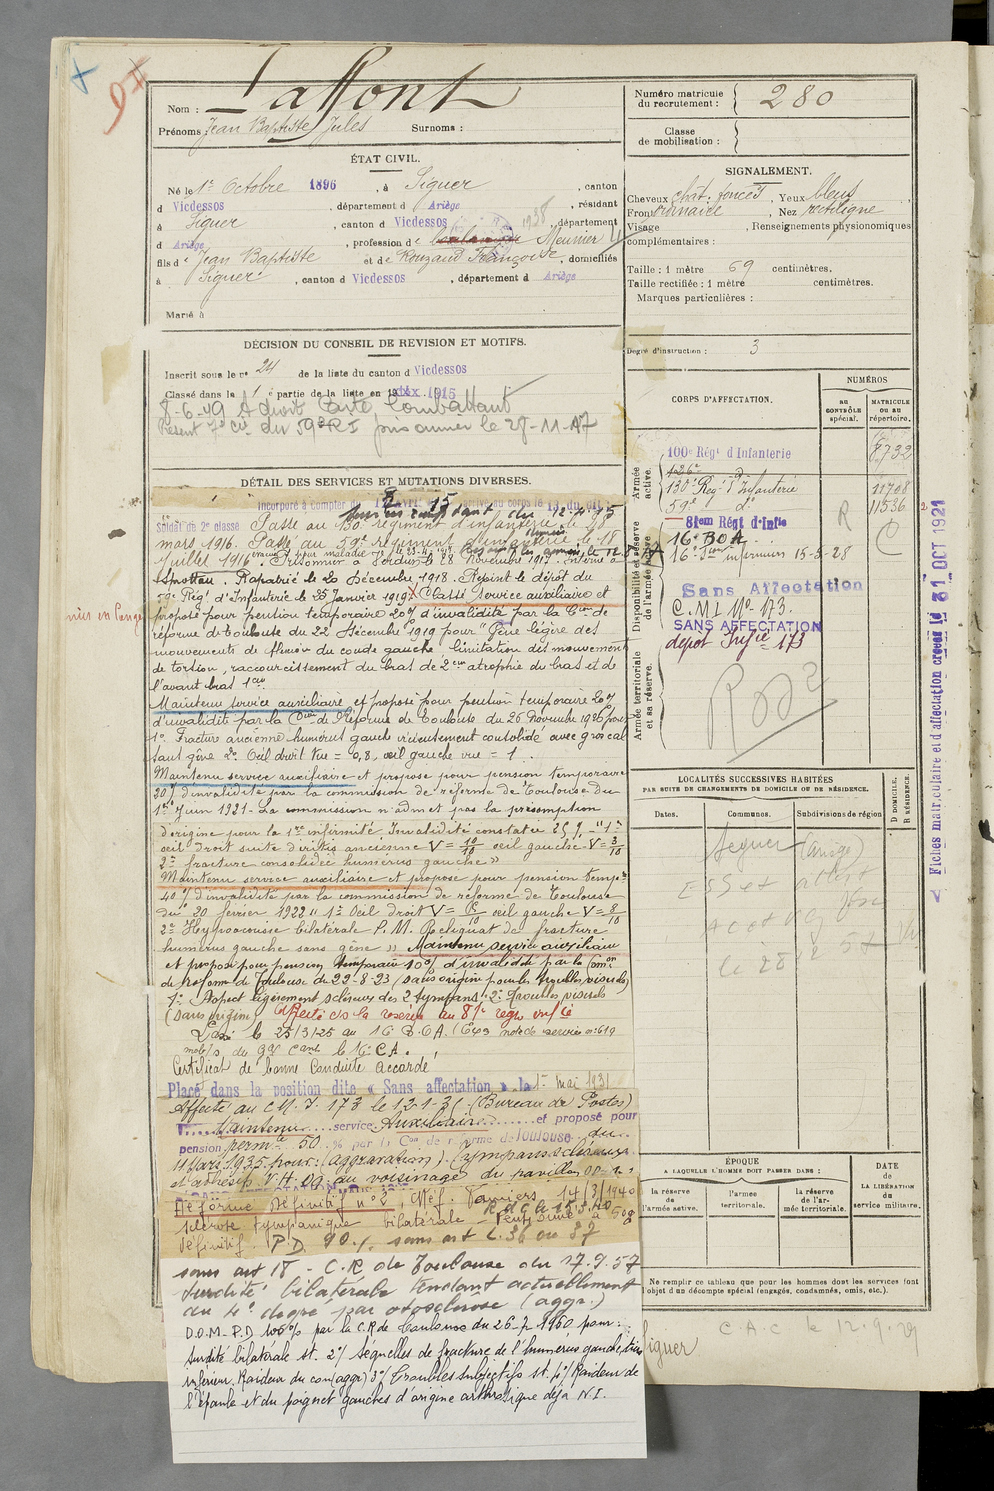 Nom : Laffont
Prénoms : Jean Baptiste Jules Surnoms :
Numéro matricule du recrutement : 280
Classe de mobilisation :
ÉTAT CIVIL.
Né le 1er Octobre 1896, à Siguer, canton
d Vicdessos, département d Ariège, résidant
à Siguer, canton d Vicdessos, département
d Ariège, profession de Meunier
fils de Jean Baptiste et de Rouzaud Françoise, domiciliés
à Siguer, canton d Vicdessos, département d Ariège
Marié à
SIGNALEMENT.
Cheveux chât. foncés, Yeux bleus
Front ordinaire, Nez rectiligne
Visage, Renseignements physionomiques
complémentaires :
Taille : 1 mètre 69 centimètres.
Taille rectifiée : 1 mètre centimètres.
Marques particulières :
Degré d'instruction : 3
DÉCISION DU CONSEIL DE REVISION ET MOTIFS.
Inscrit sous le no 24 de la liste du canton d Vicdessos
Classé dans la 1 partie de la liste en 1915
8-6-49 A droit Carte Combattant
Présent 7e Cie du 59e RI prisonnier le 28-11-17
DÉTAIL DES SERVICES ET MUTATIONS DIVERSES.
Incorporé à compter du 15 arrivé au corps le
Soldat de 2e classe Passé au 130e régiment d'infanterie le
mars 1916. Passé au 59e régiment d'infanterie le 18
juillet 1916. Prisonnier à Verdun le 28 Novembre 1917. Interné à
Sprottau. Rapatrié le 20 Décembre 1918. Rejoint le dépôt du
59e Rég' d'Infanterie le 25 Janvier 1919. Classé service auxiliaire et
proposé pour pension temporaire 20% d'invalidité par la Con de
réforme de Toulouse du 22 Décembre 1919 pour "Gêne légère des
mouvements de flexion du coude gauche, limitation des mouvements
de torsion, raccourcissement du bras de 2cm atrophie du bras et de
l'avant bras 1cm
Maintenu service auxiliaire et proposé pour pension temporaire 20%
d'invalidité par la Con de Réforme de Toulouse du 26 Novembre 1920 pour
1° Fracture ancienne humérus gauche vicieusement consolidé avec gros cal
sans gêne 2° Oeil droit vue = 0,8, oeil gauche vue = 1.
Maintenu service auxiliaire et proposé pour pension temporaire
20% d'invalidité par la commission de réforme de Toulouse du
1er Juin 1921 - La commission n'admet pas la présomption
d'origine pour la 1re infirmité Invalidité constatée 25% - "1°
oeil droit suite d'iritis ancienne V = 10/10 oeil gauche V = 3/10
2° fracture consolidée humérus gauche"
Maintenu service auxiliaire et proposé pour pension tempre
40% d'invalidité par la commission de réforme de Toulouse
du 20 février 1922 "1° Oeil droit V = /10 oeil gauche V = 8/10
2° Hypoacousie bilatérale P.M. Reliquat de fracture
humérus gauche sans gêne" Maintenu service auxiliaire
et proposé pour pension temporaire 10% d'invalidité par la Comon
de réforme de Toulouse du 22-8-23 (sans origine pour les troubles visuels)
1° Aspect légèrement scléreux des 2 tympans 2° troubles visuels
(sans origine) Affecté ds la réserve au 81e régt infie
Passé le 25/3/25 au 16 B.O.A. (Exs note de service no 619
mob/s du Gal Cant le 16e C.A.
Certificat de bonne Conduite accordé
Placé dans la position dite « Sans affectation » le 1er mai 1931
Affecté au C.M.I. 173 le 12-1-3 (Bureau de Postes)
Maintenu service Auxiliaire et proposé pour
pension permte 50 % par la Con de réforme de Toulouse du
11 Mars 1935 pour : (aggravation). tympans scléreux
et adhésifs V.H. OD au voisinage du pavillon
Réforme définitif no 2, Pamiers 14/3/1940
sclérose tympanique bilatérale
définitif. P.D. 90 % sans art L. 36 ou 37
sans art 18 - C.R de Toulouse du 17.9.57
surdité bilatérale tendant actuellement
au 4e degré par otosclérose (aggr.)
D.O.M - P.D 100% par la C.R de Toulouse du 26-7-1960 pour :
Surdité bilatérale st. 2°/ Séquelles de fracture de l'humérus gauche, tiers
inférieur. Raideur du cou (aggr) 3°/ Troubles subjectifs st. 4°/ Raideur de
l'épaule et du poignet gauches d'origine arthrosique déjà N.I.
CORPS D'AFFECTATION.
NUMÉROS
AU CONTRÔLE spécial.
MATRICULE OU AU répertoire.
Armée active.
Disponibilité et réserve de l'armée active
Armée territoriale et sa réserve.
100e Régt d'Infanterie 8732
126e d°
130e Régt d'Infanterie 11708
59e d° 11536
81em Régt d'Infie R C
16e B O A
16e Son infirmiers 15-5-28
Sans Affectation
C.M.I No 173.
SANS AFFECTATION
dépôt Infie 173
Rd 2
LOCALITÉS SUCCESSIVES HABITÉES
PAR SUITE DE CHANGEMENTS DE DOMICILE OU DE RÉSIDENCE.
Dates. Communes. Subdivisions de région
D DOMICILE. R RÉSIDENCE.
Siguer (Ariège)
ÉPOQUE
A LAQUELLE L'HOMME DOIT PASSER DANS :
la réserve de l'armée active.
l'armée territoriale.
la réserve de l'armée territoriale.
DATE de LA LIBÉRATION du service militaire.
Ne remplir ce tableau que pour les hommes dont les services font
l'objet d'un décompte spécial (engagés, condamnés, omis, etc.).
Siguer
C.A.C le 12.9.29
Fiches matriculaire et d'affectation créées le 31 OCT 1921